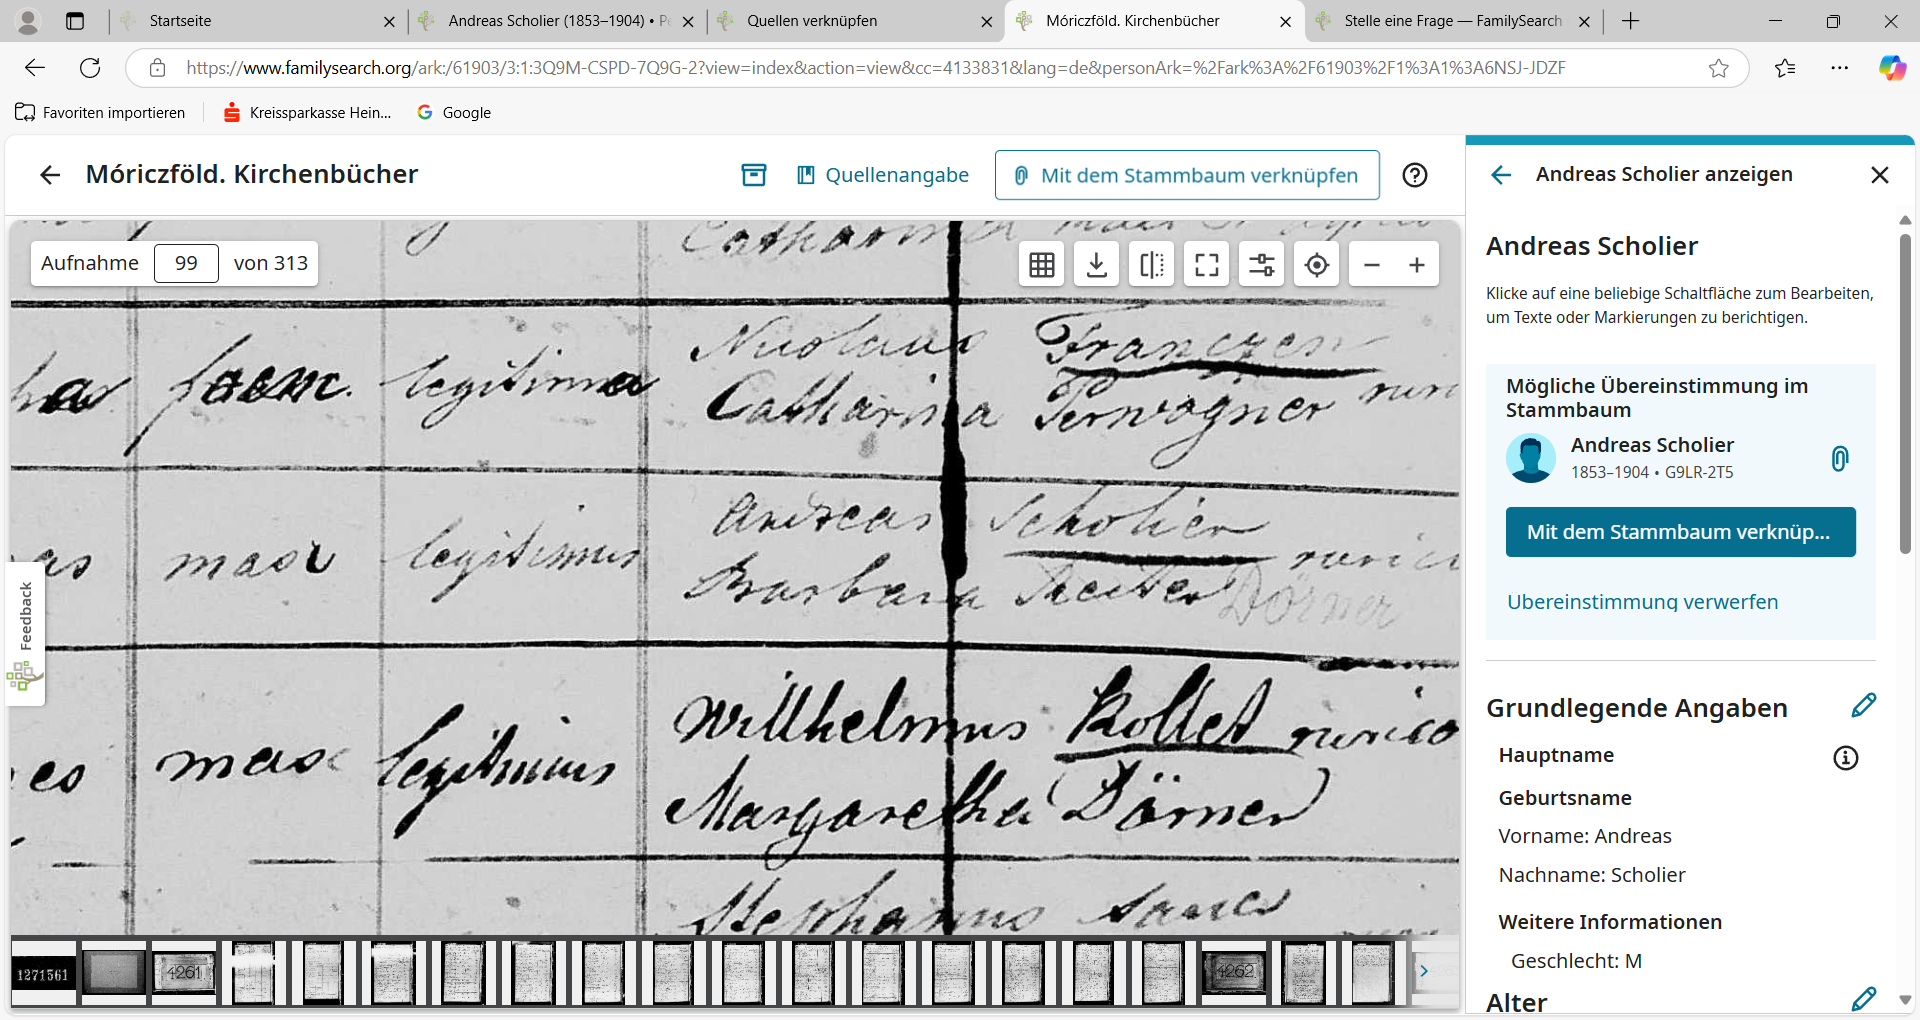 Startseite
Andreas Scholier (1853–1904) • Pe
Quellen verknüpfen
Móriczföld. Kirchenbücher
Stelle eine Frage — FamilySearch
https://www.familysearch.org/ark:/61903/3:1:3Q9M-CSPD-7Q9G-2?view=index&action=view&cc=4133831&lang=de&personArk=%2Fark%3A%2F61903%2F1%3A1%3A6NSJ-JDZF
Favoriten importieren
Kreissparkasse Hein...
Google
Móriczföld. Kirchenbücher
Quellenangabe
Mit dem Stammbaum verknüpfen
Aufnahme 99 von 313
Catharina
Nicolaus Franczen
foem. legitima
Catharina Pernvagner ruri
Andreas Scholier
mascu legitimus ruric
Barbara Reiter Dörner
Willhelmus Kollet rurico
masc legitimus
es
Margaretha (Dörner)
Stephanus
Feedback
1271561
4261
4262
Andreas Scholier anzeigen
Andreas Scholier
Klicke auf eine beliebige Schaltfläche zum Bearbeiten,
um Texte oder Markierungen zu berichtigen.
Mögliche Übereinstimmung im
Stammbaum
Andreas Scholier
1853–1904 • G9LR-2T5
Mit dem Stammbaum verknüp...
Übereinstimmung verwerfen
Grundlegende Angaben
Hauptname
Geburtsname
Vorname: Andreas
Nachname: Scholier
Weitere Informationen
Geschlecht: M
Alter